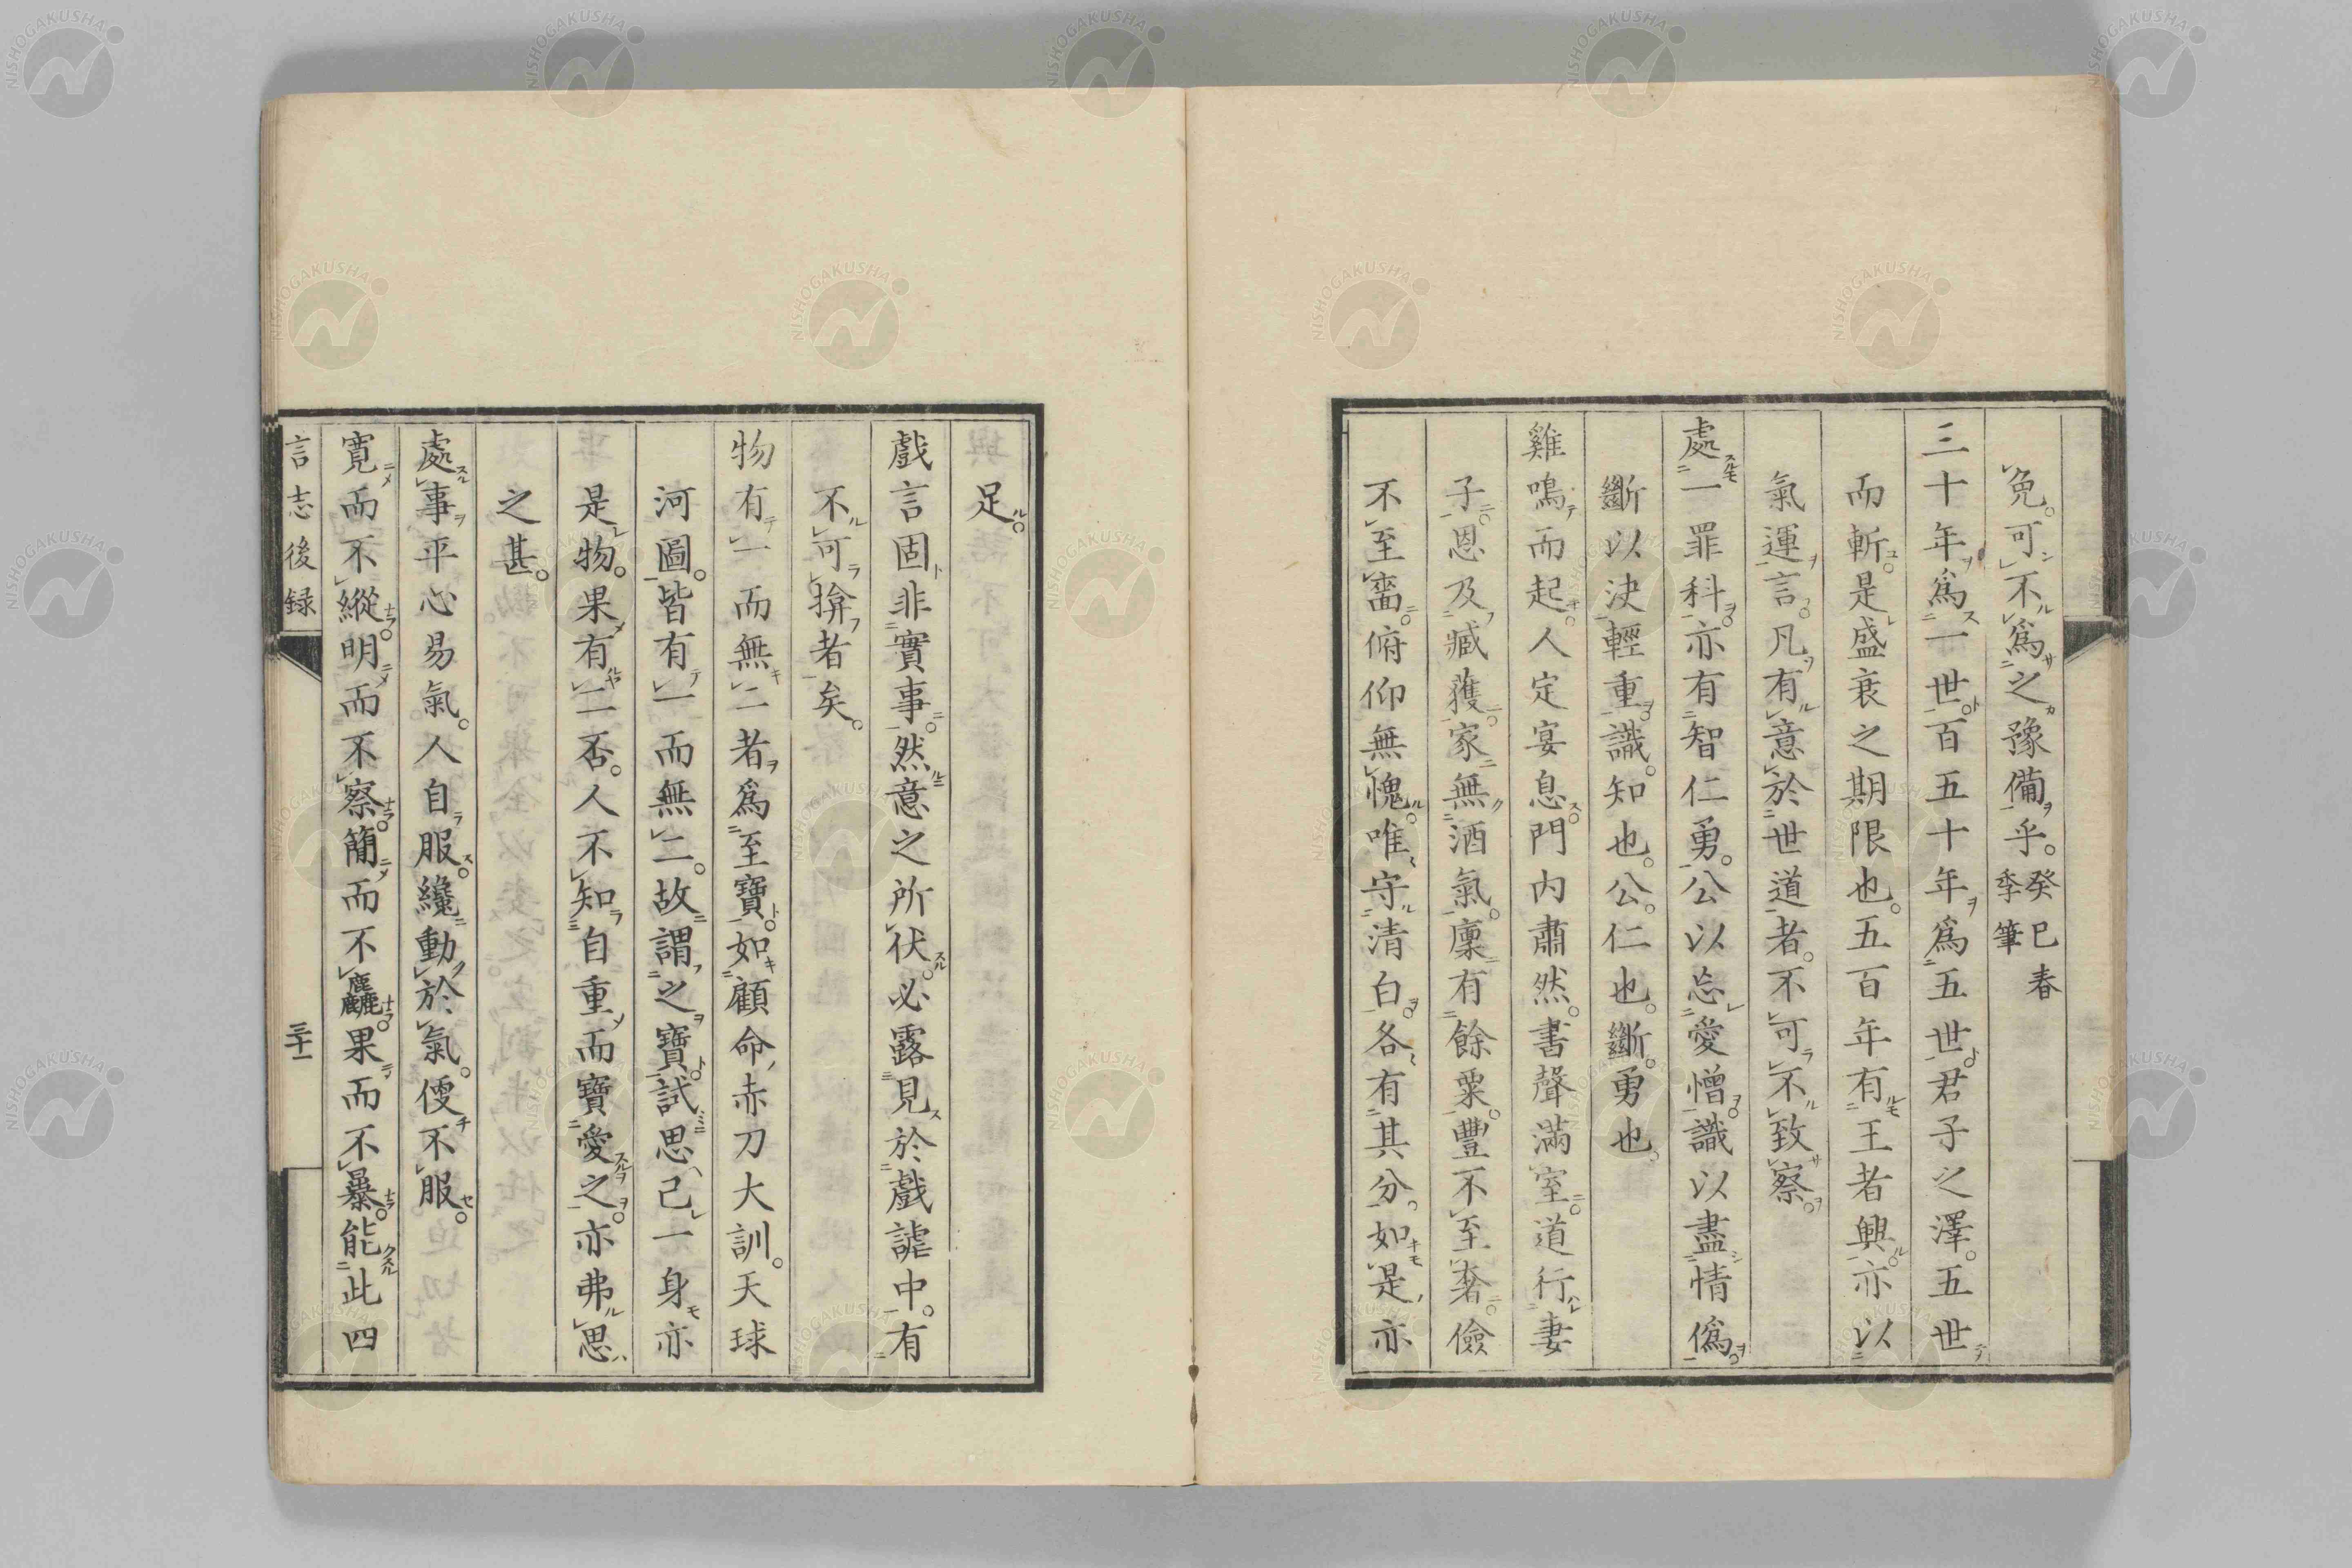 免。可不爲之豫備乎。癸巳春季筆
三十年爲一世。百五十年爲五世。君子之澤。五世
而斬。是盛衰之期限也。五百年有王者興。亦以
氣運言。凡有意於世道者。不可不致察。
處一罪科。亦有智仁勇。公以忘愛憎。識以盡情僞。
斷以決輕重。識。知也。公。仁也。斷。勇也。
雞鳴而起。人定宴息。門内肅然。書聲滿室。道行妻
子。恩及臧獲。家無酒氣。廩有餘粟。豐不至奢。儉
不至嗇。俯仰無愧。唯守清白。各有其分。如是亦
足。
戲言固非實事。然意之所伏。必露見於戲謔中。有
不可揜者矣。
物有一而無二者爲至寶。如顧命赤刀大訓。天球
河圖。皆有一而無二。故謂之寶。試思己一身亦
是物。果有二否。人不知自重而寶愛之。亦弗思
之甚。
處事平心易氣。人自服。纔動於氣。便不服。
寬而不縱。明而不察。簡而不麤。果而不暴。能此四
言志後録
三十一
NISHOGAKUSHA